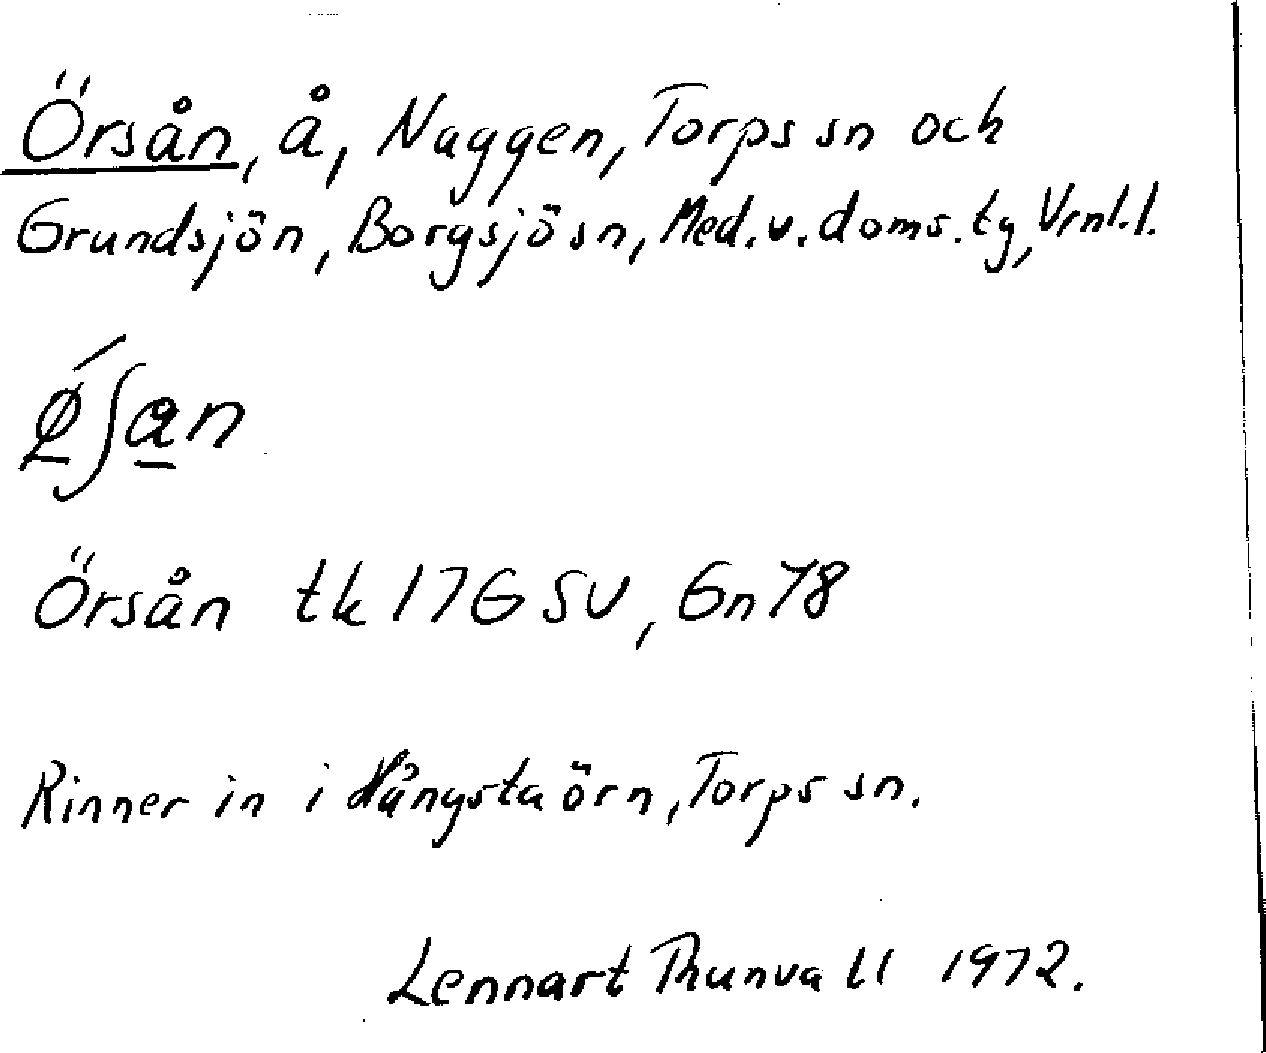 Örsån, å, Naggen, Torps sn och
Grundsjön, Borgsjö sn, Med. v. doms. tg, Vrnl.l.
Örsån tk 17G SV, Gn 78
Rinner in i Hångstaörn, Torps sn.
Lennart Thunvall 1972.